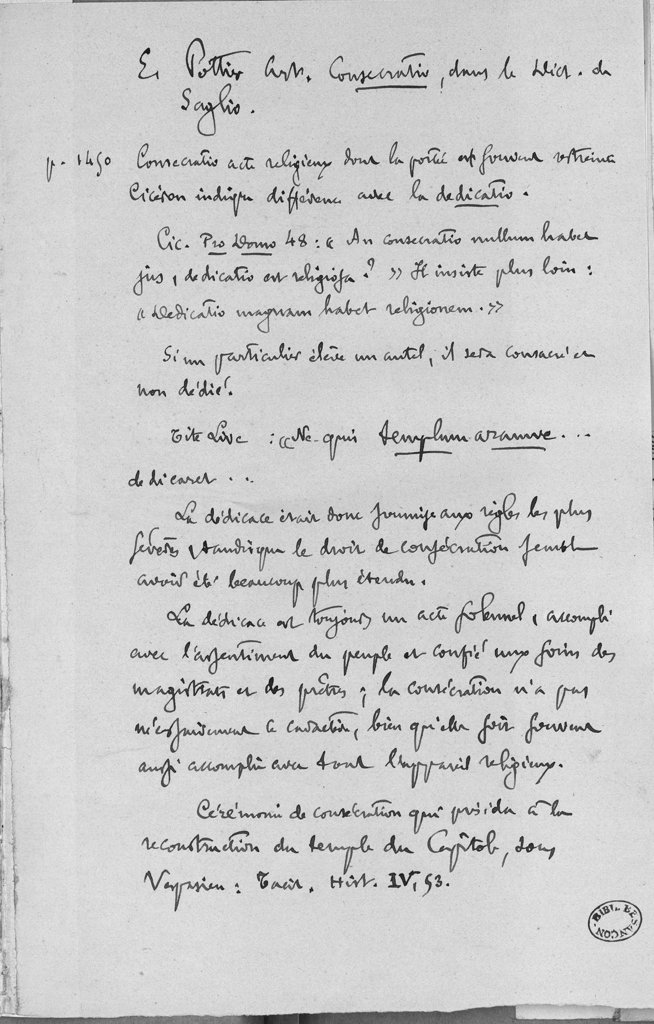 E. Pottier Art. Consecratio, dans le Dict. de
Saglio.
p. 1450 Consecratio acte religieux dont la portée est souvent restreinte
Cicéron indique différence avec la dedicatio.
Cic. Pro Domo 48 : « An consecratio nullum habet
jus, dedicatio est religiosa ? » Il insiste plus loin :
« Dedicatio magnam habet religionem. »
Si un particulier élève un autel, il sera consacré et
non dédié.
Tite Live : « Ne quis templum aramve...
dedicaret ..
La dédicace était donc soumise aux règles les plus
sévères, tandis que le droit de consécration semble
avoir été beaucoup plus étendu.
La dédicace est toujours un acte solennel, accompli
avec l'assentiment du peuple et confié aux soins des
magistrats et des prêtres ; la consécration n'a pas
nécessairement ce caractère, bien qu'elle soit souvent
aussi accomplie avec tout l'appareil religieux.
Cérémonie de consécration qui présida à la
reconstruction du temple du Capitole, sous
Vespasien : Tacit. Hist. IV, 53.
BIBL. BESANÇON